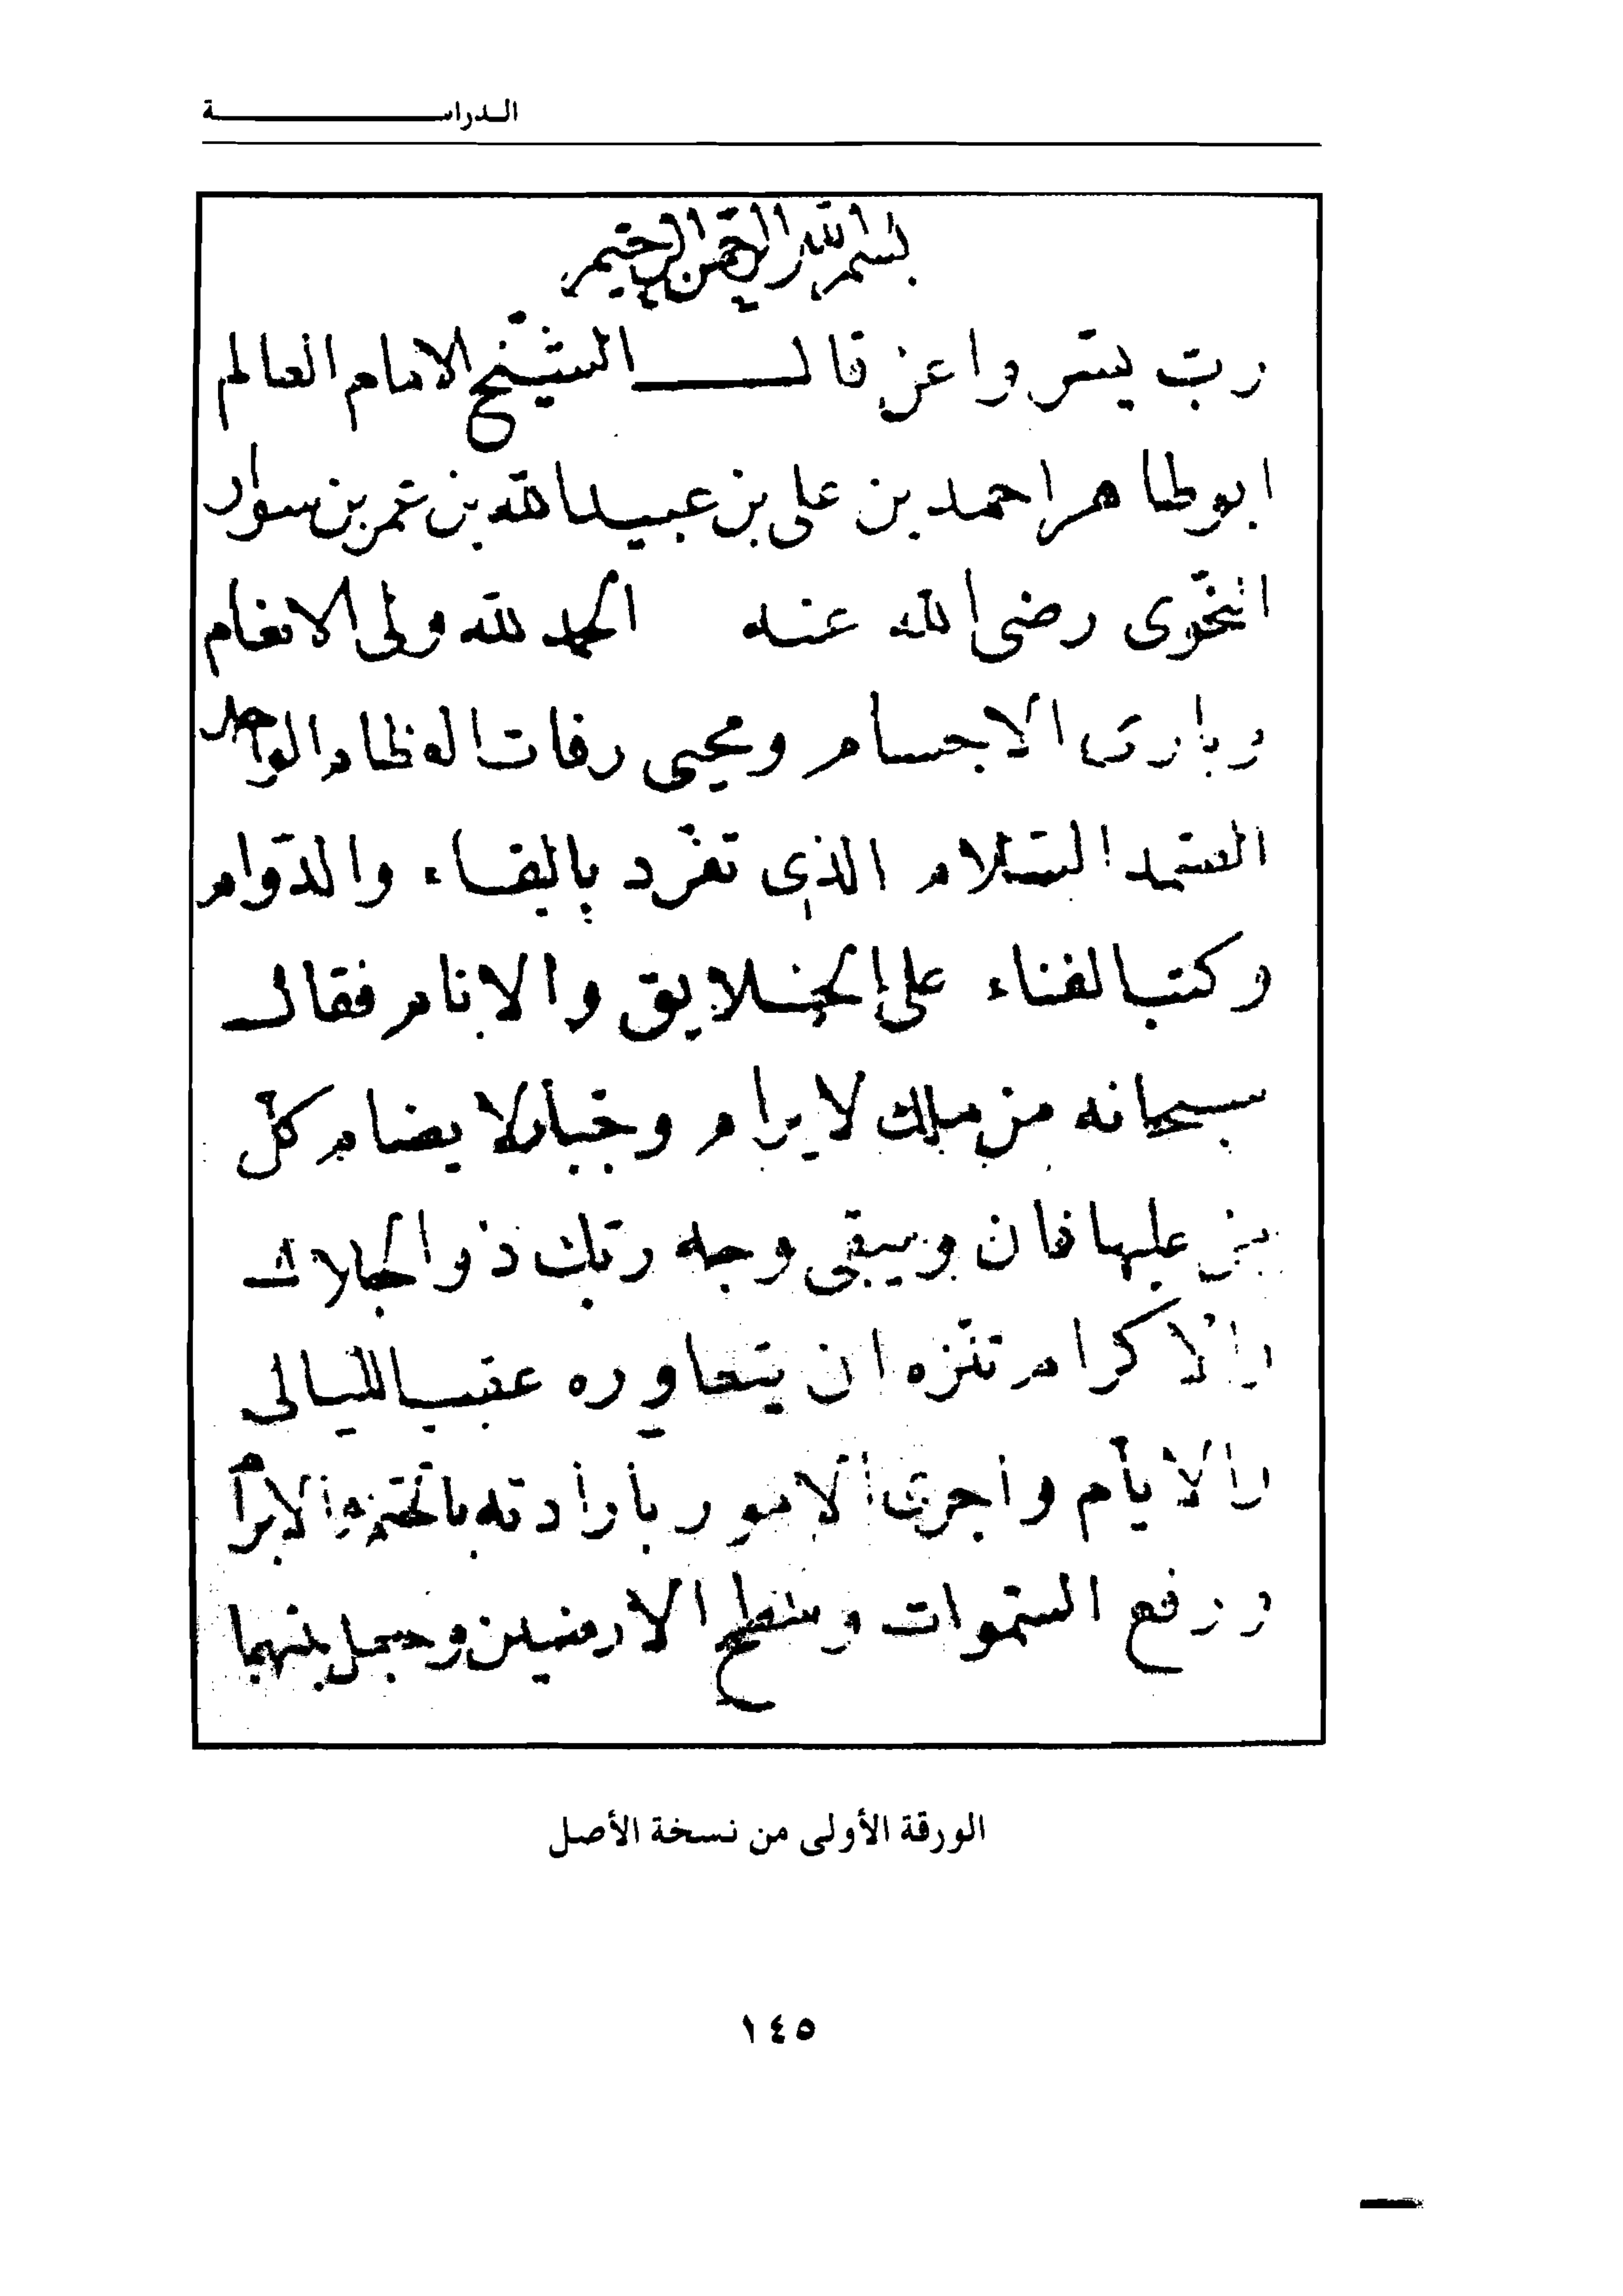 الدراسة
بسم الله الرحمن الرحيم
رب يسر واعن قال الشيخ الامام العالم
ابو طاهر احمد بن على بن عبيد الله بن عمر بن سوار
النحوى رضى الله عنه الحمد لله ولى الانعام
وبارئ الاجسام ومحيى رفات العظام الواحد
الصمد السلام الذى تفرد بالبقاء والدوام
وكتب الفناء على الخلايق والانام فقال
سبحانه من ملك لا يرام وجبار لا يضام كل
من عليها فان ويبقى وجه ربك ذو الجلال
والاكرام تنزه ان يتعاوره عقب الليالى
والايام واجرى الامور بارادته بالحتم والابرام
ورفع السموات وسطح الارضين وجعل بينهما
الورقة الأولى من نسخة الأصل
١٤٥